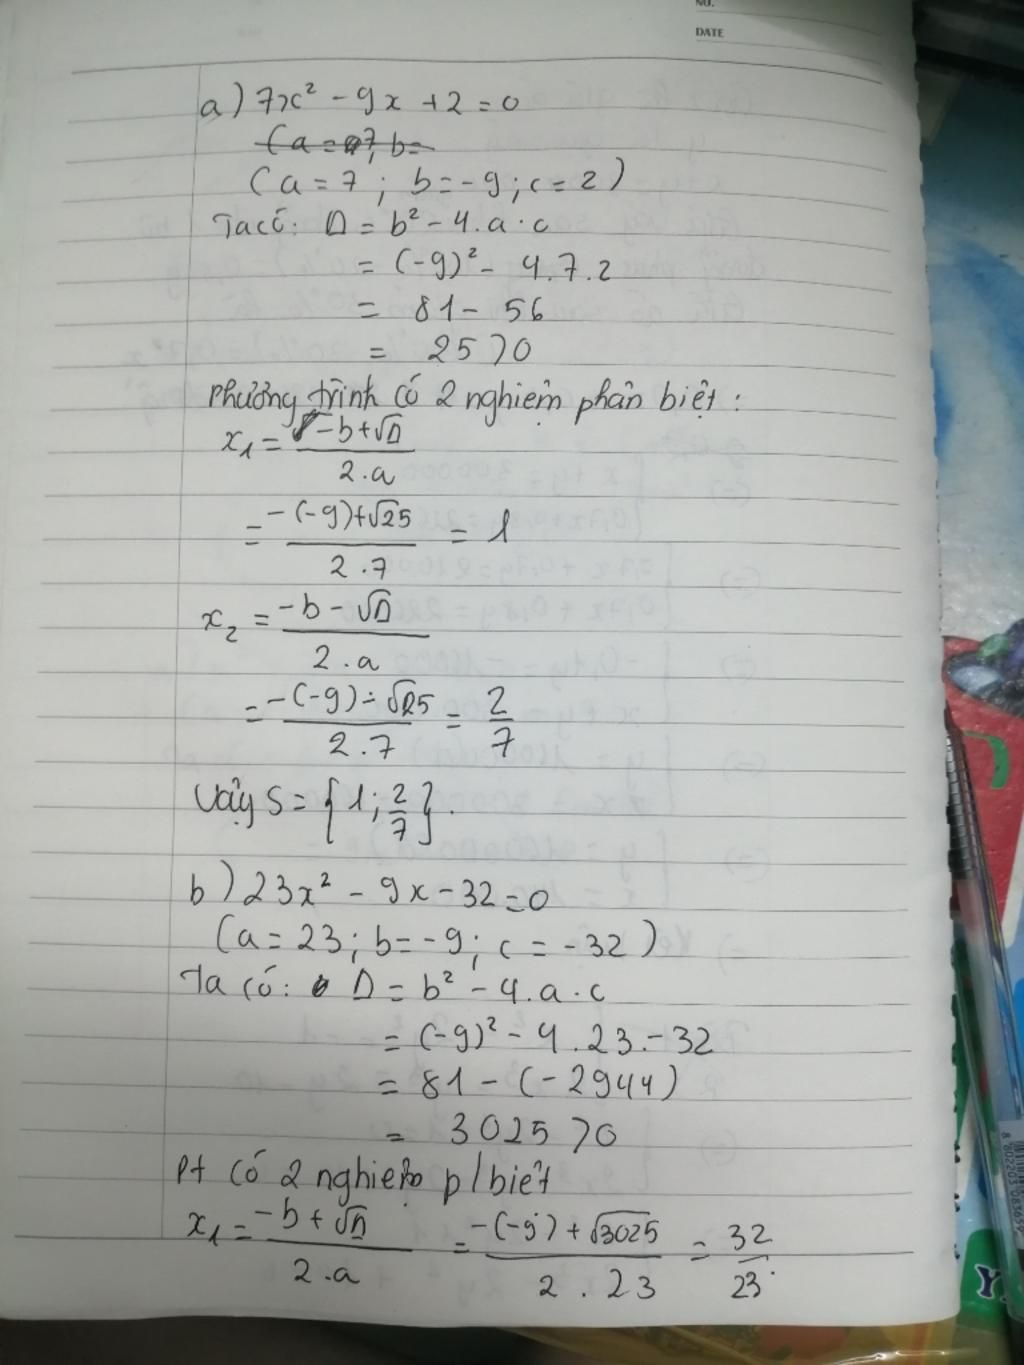 NO.
DATE
a) 7x² - 9x + 2 = 0
(a = 7; b =
(a = 7; b = -9; c = 2)
Ta có: Δ = b² - 4.a.c
= (-9)² - 4.7.2
= 81 - 56
= 25 > 0
Phương trình có 2 nghiệm phân biệt:
x₁ = (-b + √Δ) / (2.a)
= (-(-9) + √25) / (2.7) = 1
x₂ = (-b - √Δ) / (2.a)
= (-(-9) - √25) / (2.7) = 2/7
Vậy S = {1; 2/7}.
b) 23x² - 9x - 32 = 0
(a = 23; b = -9; c = -32)
Ta có: Δ = b² - 4.a.c
= (-9)² - 4.23.-32
= 81 - (-2944)
= 3025 > 0
Pt có 2 nghiệm p/biệt
x₁ = (-b + √Δ) / (2.a) = (-(-9) + √3025) / (2.23) = 32/23.